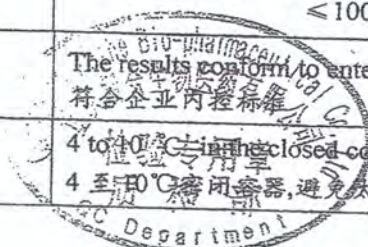 ≤100
The results conform to ente
符合企业内控标准
4 to 10 ℃ in the closed co
4 至 10℃密闭容器,避免
Bio-pharmaceutical Co
检验专用章
QC Department